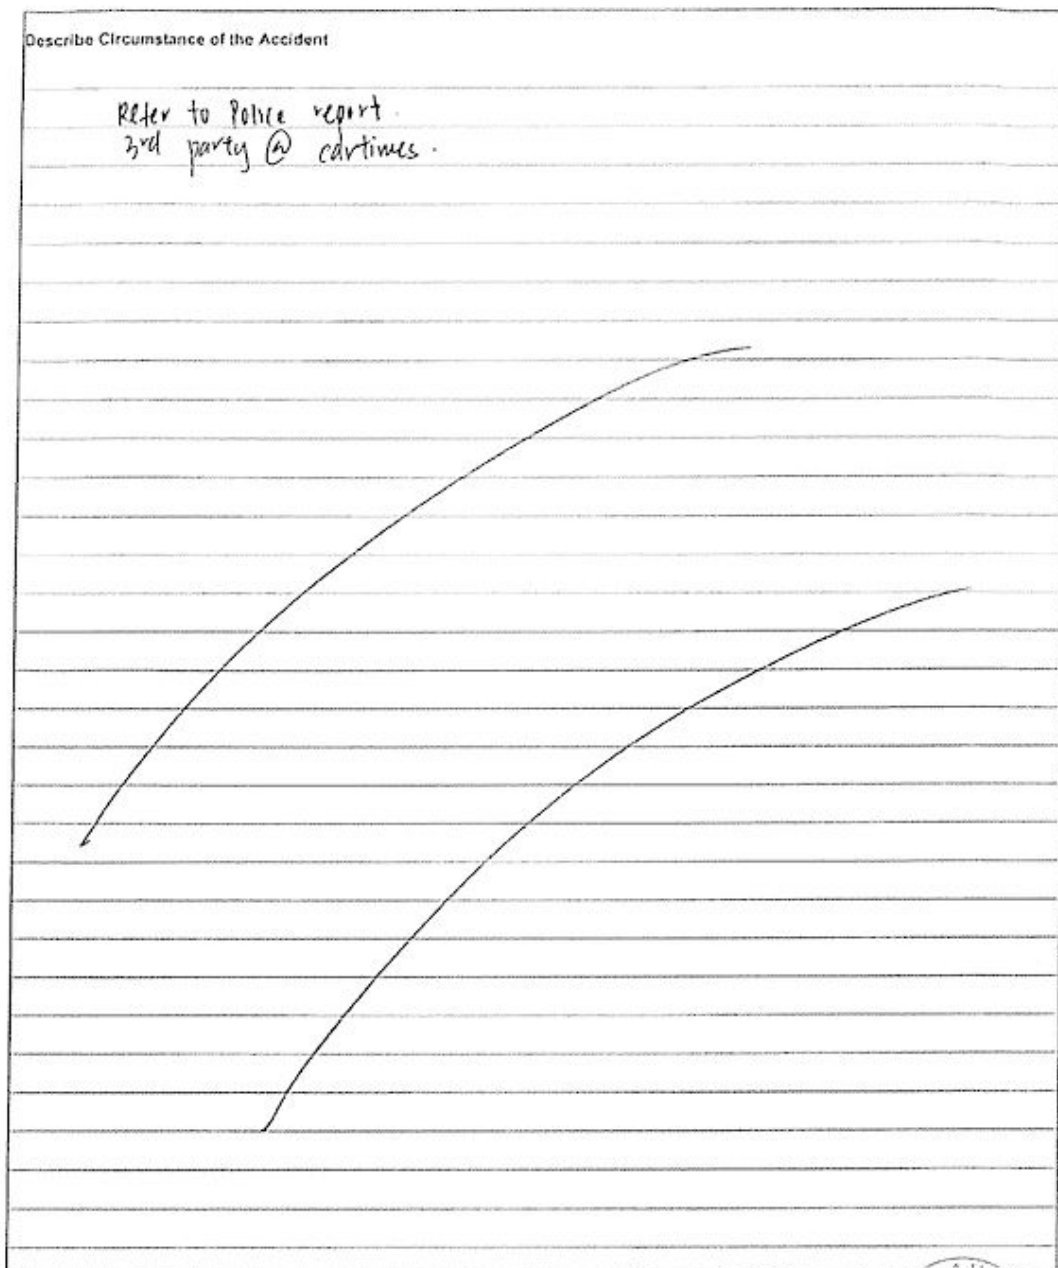 Describe Circumstance of the Accident
Refer to Police report.
3rd party @ cartimes.